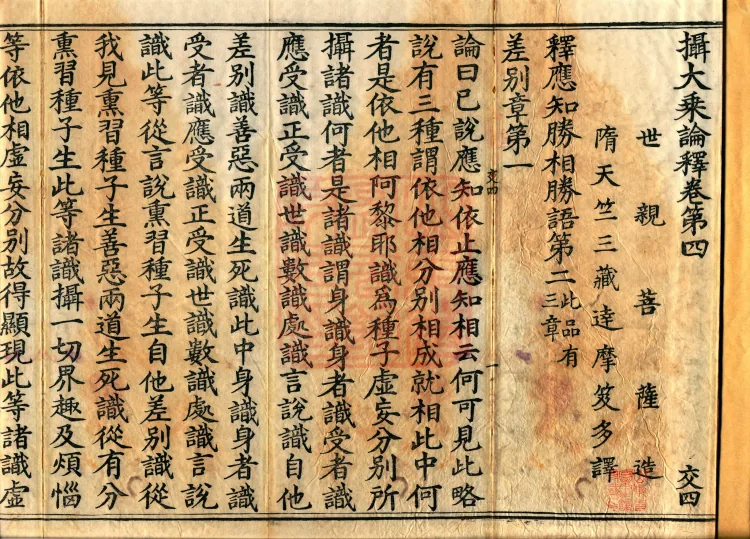 攝大乗論釋卷第四 交四
世親菩薩造
隋天竺三藏達摩笈多譯
釋應知勝相勝語第二此品有三章
差别章第一
交四 一
論曰已說應知依止應知相云何可見此略
說有三種謂依他相分别相成就相此中何
者是依他相阿黎耶識爲種子虛妄分别所
攝諸識何者是諸識謂身識身者識受者識
應受識正受識世識數識處識言說識自他
差别識善惡兩道生死識此中身識身者識
受者識應受識正受識世識數識處識言說
識此等從言說熏習種子生自他差别識從
我見熏習種子生善惡兩道生死識從有分
熏習種子生此等諸識攝一切界趣及煩惱
等依他相虛妄分别故得顯現此等諸識虛